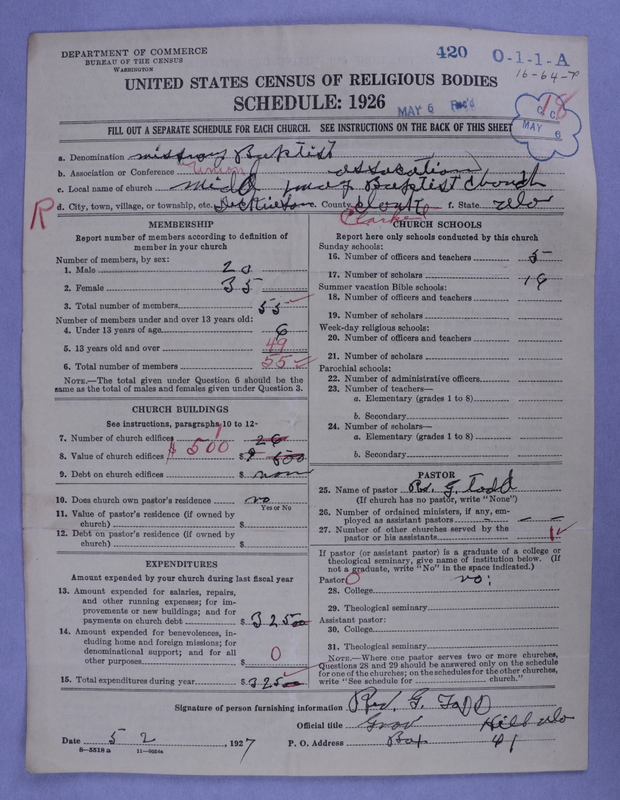 DEPARTMENT OF COMMERCE
BUREAU OF THE CENSUS
WASHINGTON
420 O-1-1-A
16-64-
UNITED STATES CENSUS OF RELIGIOUS BODIES
SCHEDULE: 1926
MAY 6 Rec'd
18
C. C.
MAY 6
FILL OUT A SEPARATE SCHEDULE FOR EACH CHURCH. SEE INSTRUCTIONS ON THE BACK OF THIS SHEET
a. Denomination missnay Baptist
b. Association or Conference Union assocation
c. Local name of church Baptist Church
d. City, town, village, or township, etc. e. County Clark f. State
R
Clarke
MEMBERSHIP
Report number of members according to definition of
member in your church
Number of members, by sex:
1. Male 20
2. Female 35
3. Total number of members 55
Number of members under and over 13 years old:
4. Under 13 years of age 6
5. 13 years old and over 49
6. Total number of members 55
NOTE.—The total given under Question 6 should be the
same as the total of males and females given under Question 3.
CHURCH BUILDINGS
See instructions, paragraphs 10 to 12-
7. Number of church edifices 1
8. Value of church edifices $500 $ 500
9. Debt on church edifices $ non
10. Does church own pastor's residence no
Yes or No
11. Value of pastor's residence (if owned by
church) $
12. Debt on pastor's residence (if owned by
church) $
EXPENDITURES
Amount expended by your church during last fiscal year
13. Amount expended for salaries, repairs,
and other running expenses; for im-
provements or new buildings; and for
payments on church debt $ 325 00
14. Amount expended for benevolences, in-
cluding home and foreign missions; for
denominational support; and for all
other purposes $ 0
15. Total expenditures during year $ 325 00
CHURCH SCHOOLS
Report here only schools conducted by this church
Sunday schools:
16. Number of officers and teachers 5
17. Number of scholars 19
Summer vacation Bible schools:
18. Number of officers and teachers
19. Number of scholars
Week-day religious schools:
20. Number of officers and teachers
21. Number of scholars
Parochial schools:
22. Number of administrative officers
23. Number of teachers—
a. Elementary (grades 1 to 8)
b. Secondary
24. Number of scholars—
a. Elementary (grades 1 to 8)
b. Secondary
PASTOR
25. Name of pastor Rev. G. Todd
(If church has no pastor, write "None")
26. Number of ordained ministers, if any, em-
ployed as assistant pastors - - -
27. Number of other churches served by the
pastor or his assistants 1
If pastor (or assistant pastor) is a graduate of a college or
theological seminary, give name of institution below. (If
not a graduate, write "No" in the space indicated.)
Pastor: 0 no:
28. College
29. Theological seminary
Assistant pastor:
30. College
31. Theological seminary
NOTE.—Where one pastor serves two or more churches,
Questions 28 and 29 should be answered only on the schedule
for one of the churches; on the schedules for the other churches,
write "See schedule for church."
Signature of person furnishing information Rev. G. Todd
Official title
Date 5 2, 1927 P. O. Address Box 41
8-5518 a